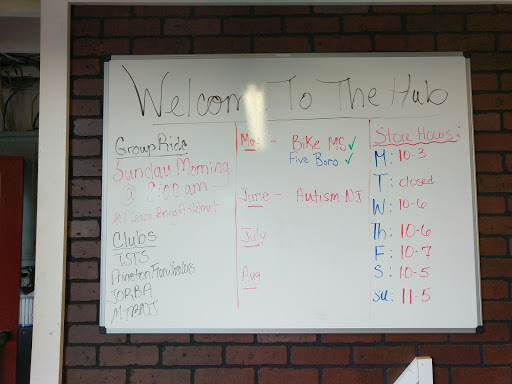 Welcom To The Hub
Group Ride
Sunday Morning
@ 8:00 am
Helmet
Clubs
JORBA
May - Bike MS ✓
Five Boro ✓
June - Autism NJ
July
Aug
Store Hours:
M: 10-3
T: closed
W: 10-6
Th: 10-6
F: 10-7
S: 10-5
Su: 11-5